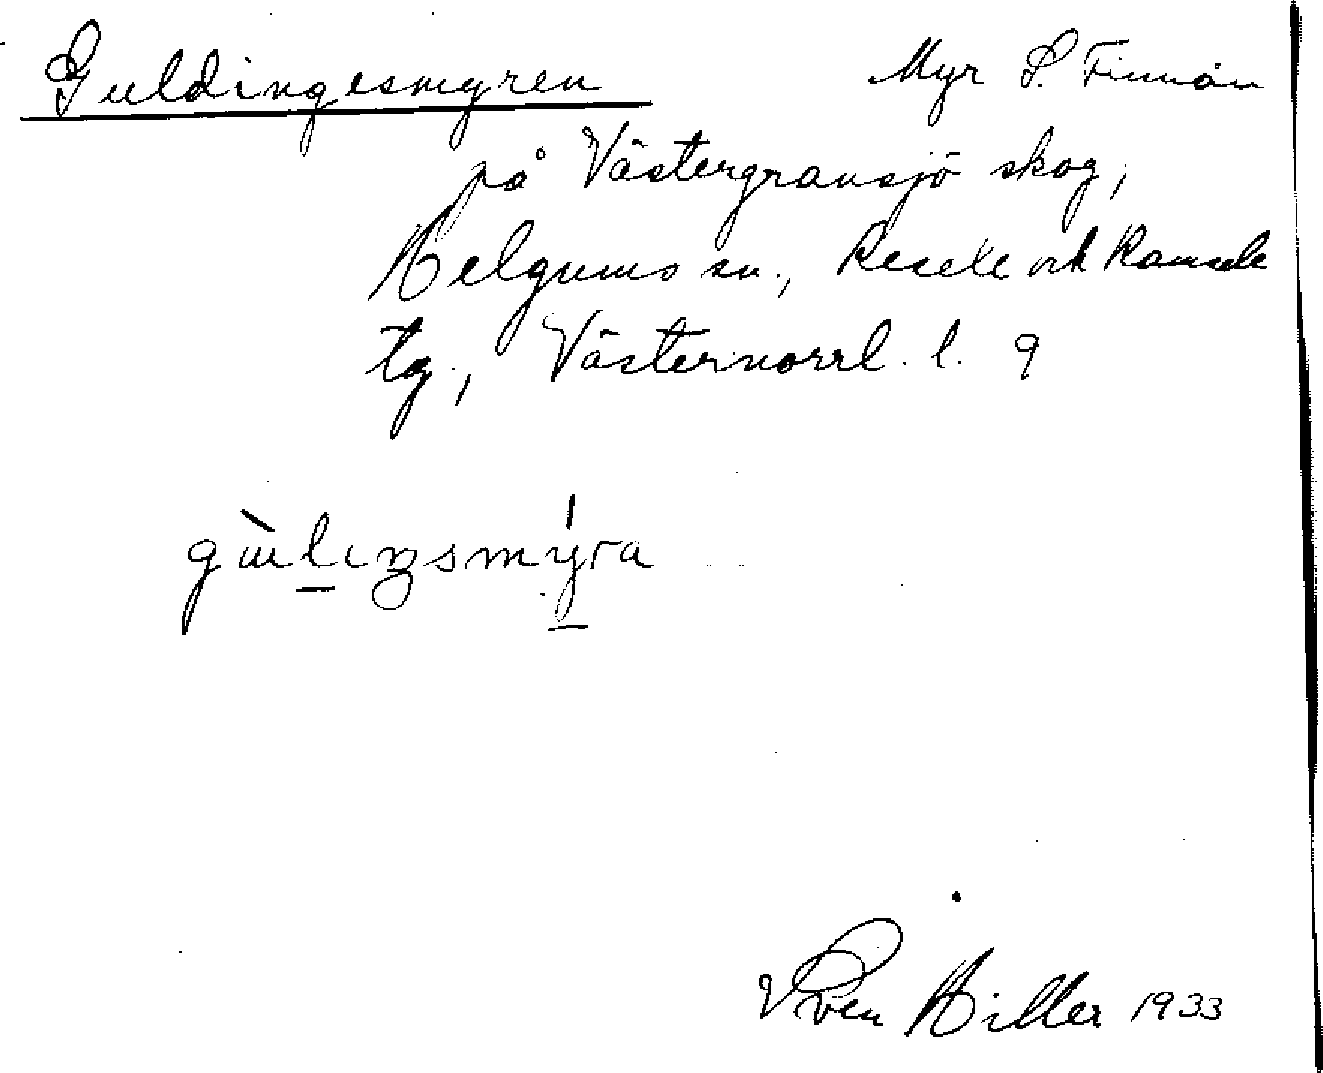 Guldingesmyren Myr S. Finnån
på Västergransjö skog,
Helgums sn., Resele och Ramsele
tg., Västernorrl. l. 9
gùlɩŋsmýra
Sven Hiller 1933